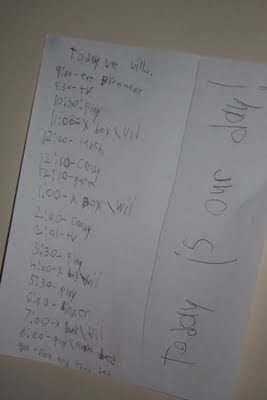 Today we will..
9:00-eat Breakfast
9:30-tv
10:30-play
11:00-X box\wii
12:00-lunch
12:10-candy
12:10-
1:00-X BOX\wii
2:00-candy
2:01-tv
3:30-play
4:00-X box\wii
5:30-play
6:00-dinner
7:00-X box\wii
8:00-play\
Today is our day!